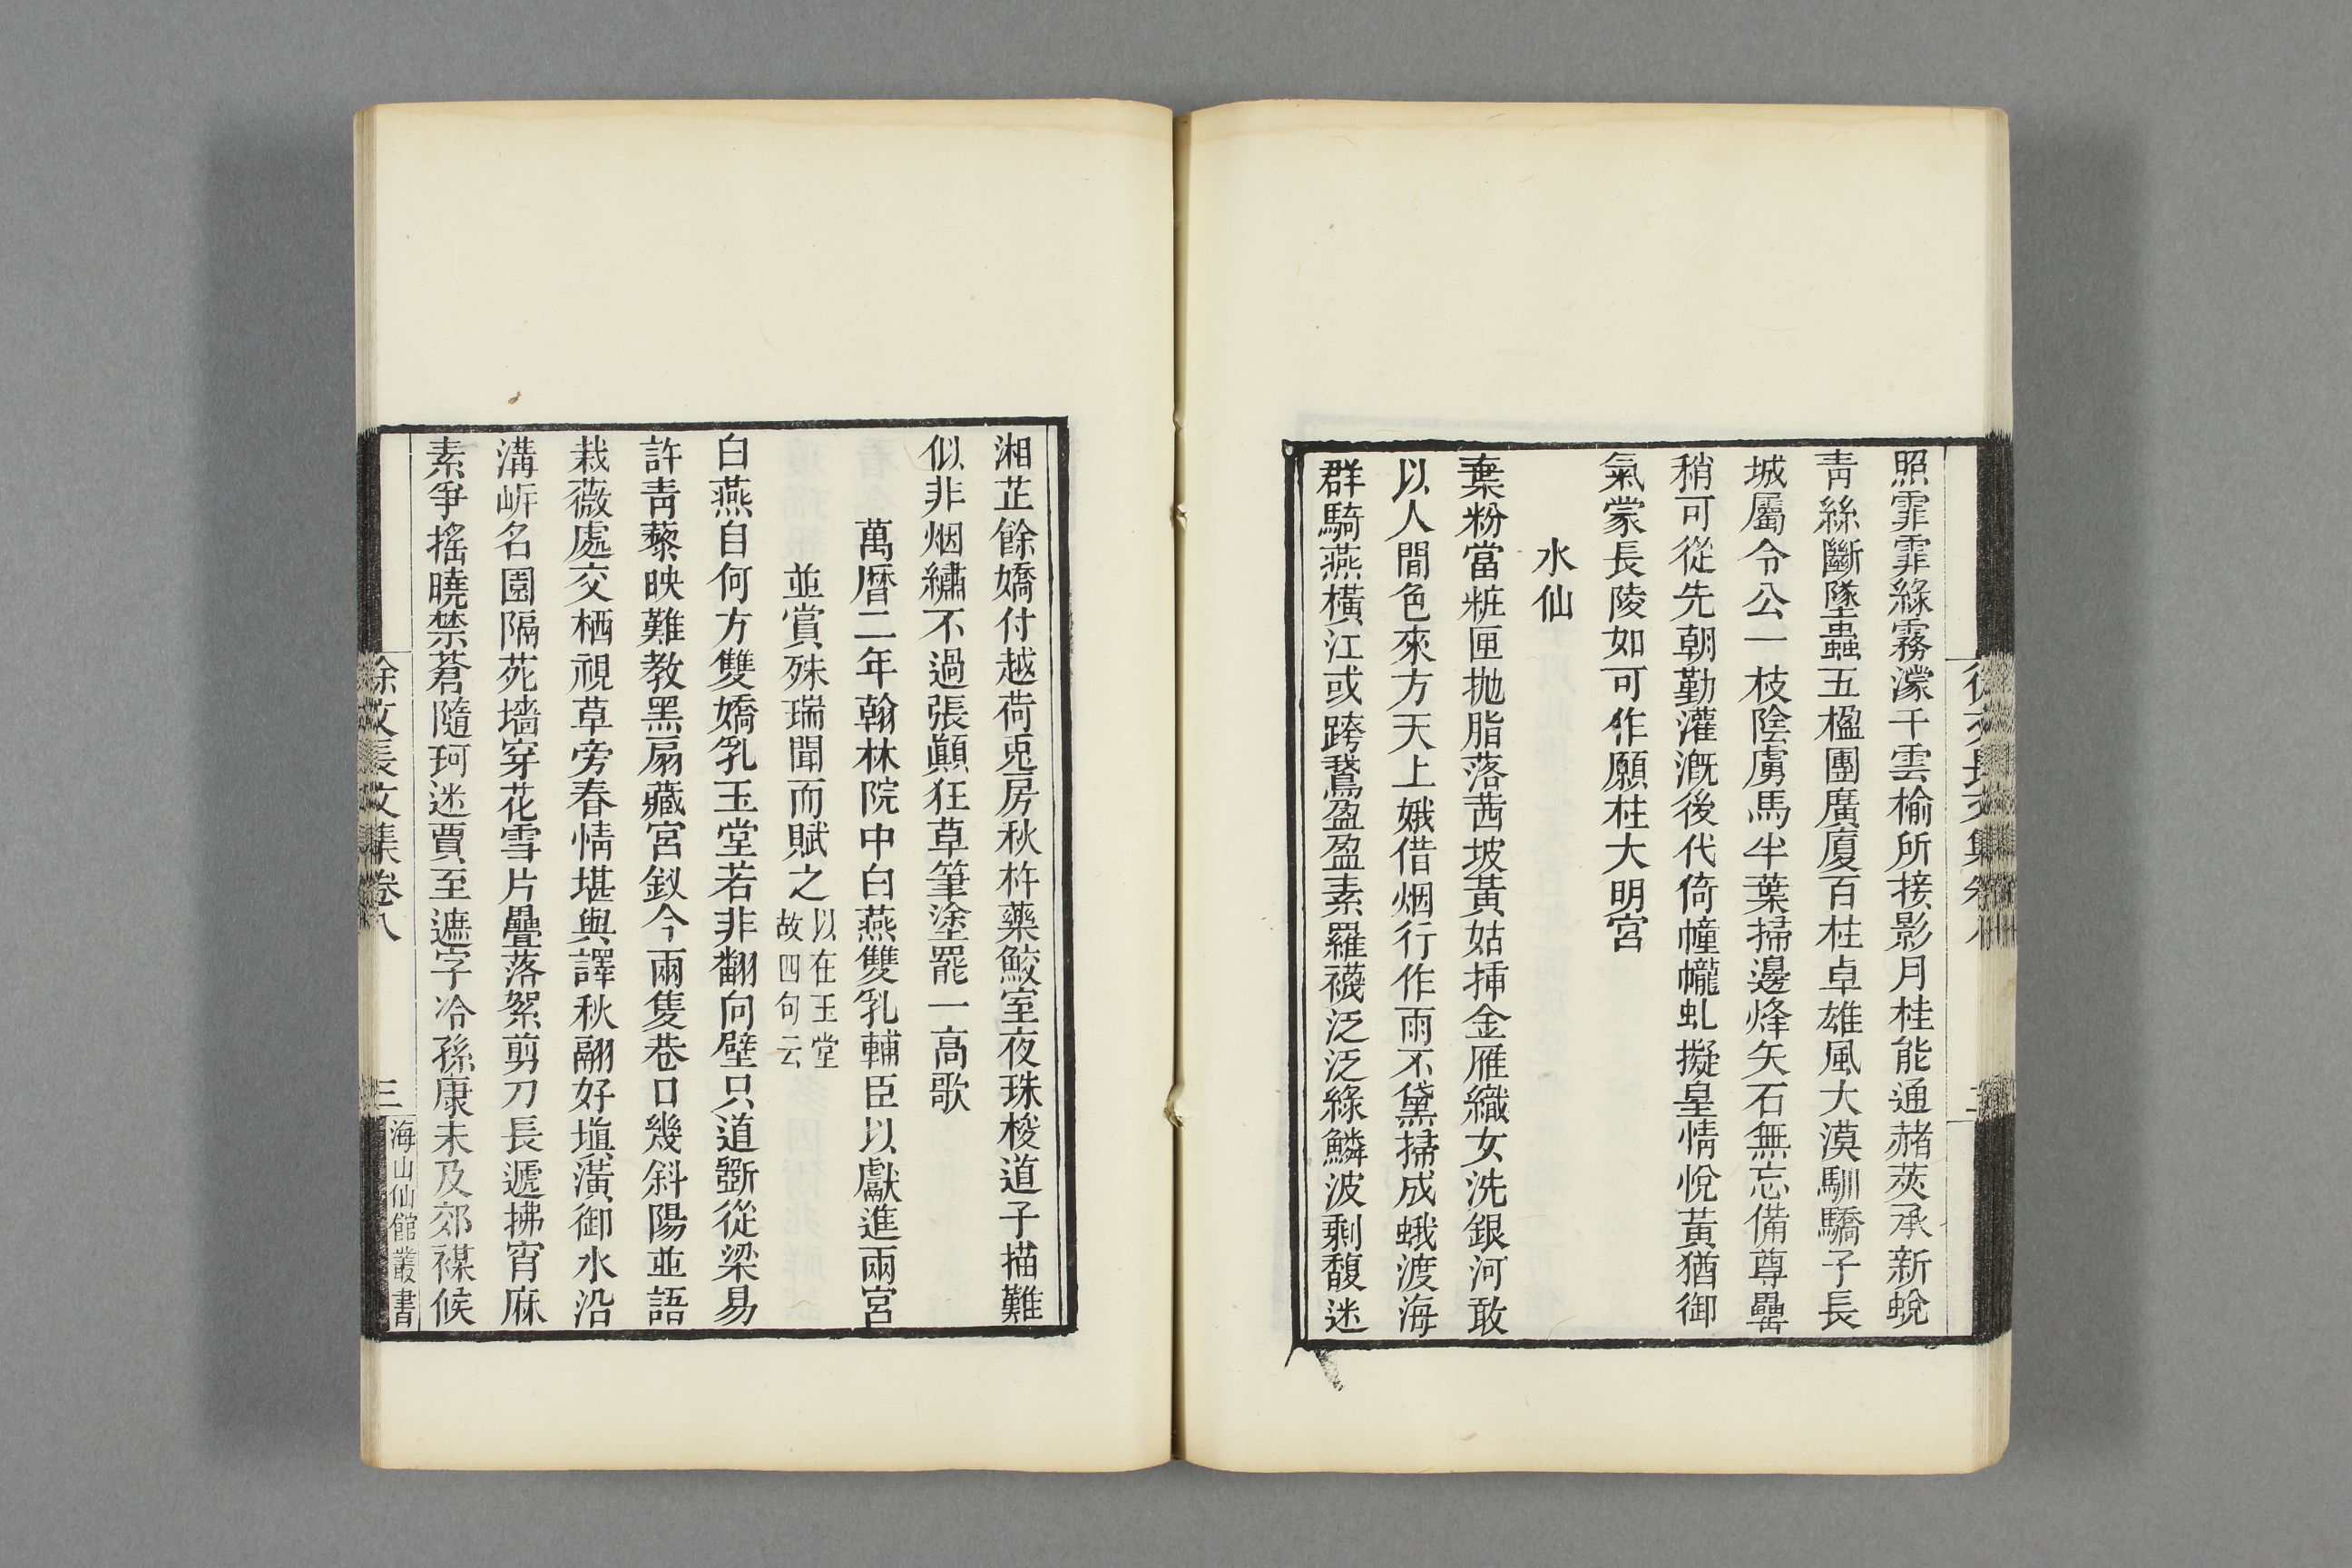 照霏霏綠霧濛干雲榆所接影月桂能通赭莢承新蛻
靑絲斷墜蟲五楹團廣廈百柱卓雄風大漠馴驕子長
城屬令公一枝陰虜馬半葉掃邊烽矢石無忘備尊罍
稍可從先朝勤灌漑後代倚幢幰虬擬皇情悅黃猶御
氣蒙長陵如可作願柱大明宮
水仙
棄粉當粧匣拋脂落茜坡黃姑揷金雁織女洗銀河敢
以人間色來方天上娥借烟行作雨不黛掃成蛾渡海
群騎燕橫江或跨鵞盈盈素羅襪泛泛綠鱗波剩馥迷
湘芷餘嬌付越荷兎房秋杵藥鮫室夜珠梭道子描難
似非烟繡不過張顚狂草筆塗罷一高歌
萬曆二年翰林院中白燕雙乳輔臣以獻進兩宮
並賞殊瑞聞而賦之以在玉堂
故四句云
白燕自何方雙嬌乳玉堂若非翻向壁只道斲從梁易
許靑藜映難教黑扇藏宮釵今兩隻巷口幾斜陽並語
栽薇處交栖視草旁春情堪與譯秋翮好塡潢御水沿
溝㟁名園隔苑墻穿花雪片疊落絮剪刀長遞拂宵麻
素爭搖曉禁蒼隨珂迷賈至遮字冷孫康未及郊禖候
徐文長文集卷八
三
海山仙館叢書